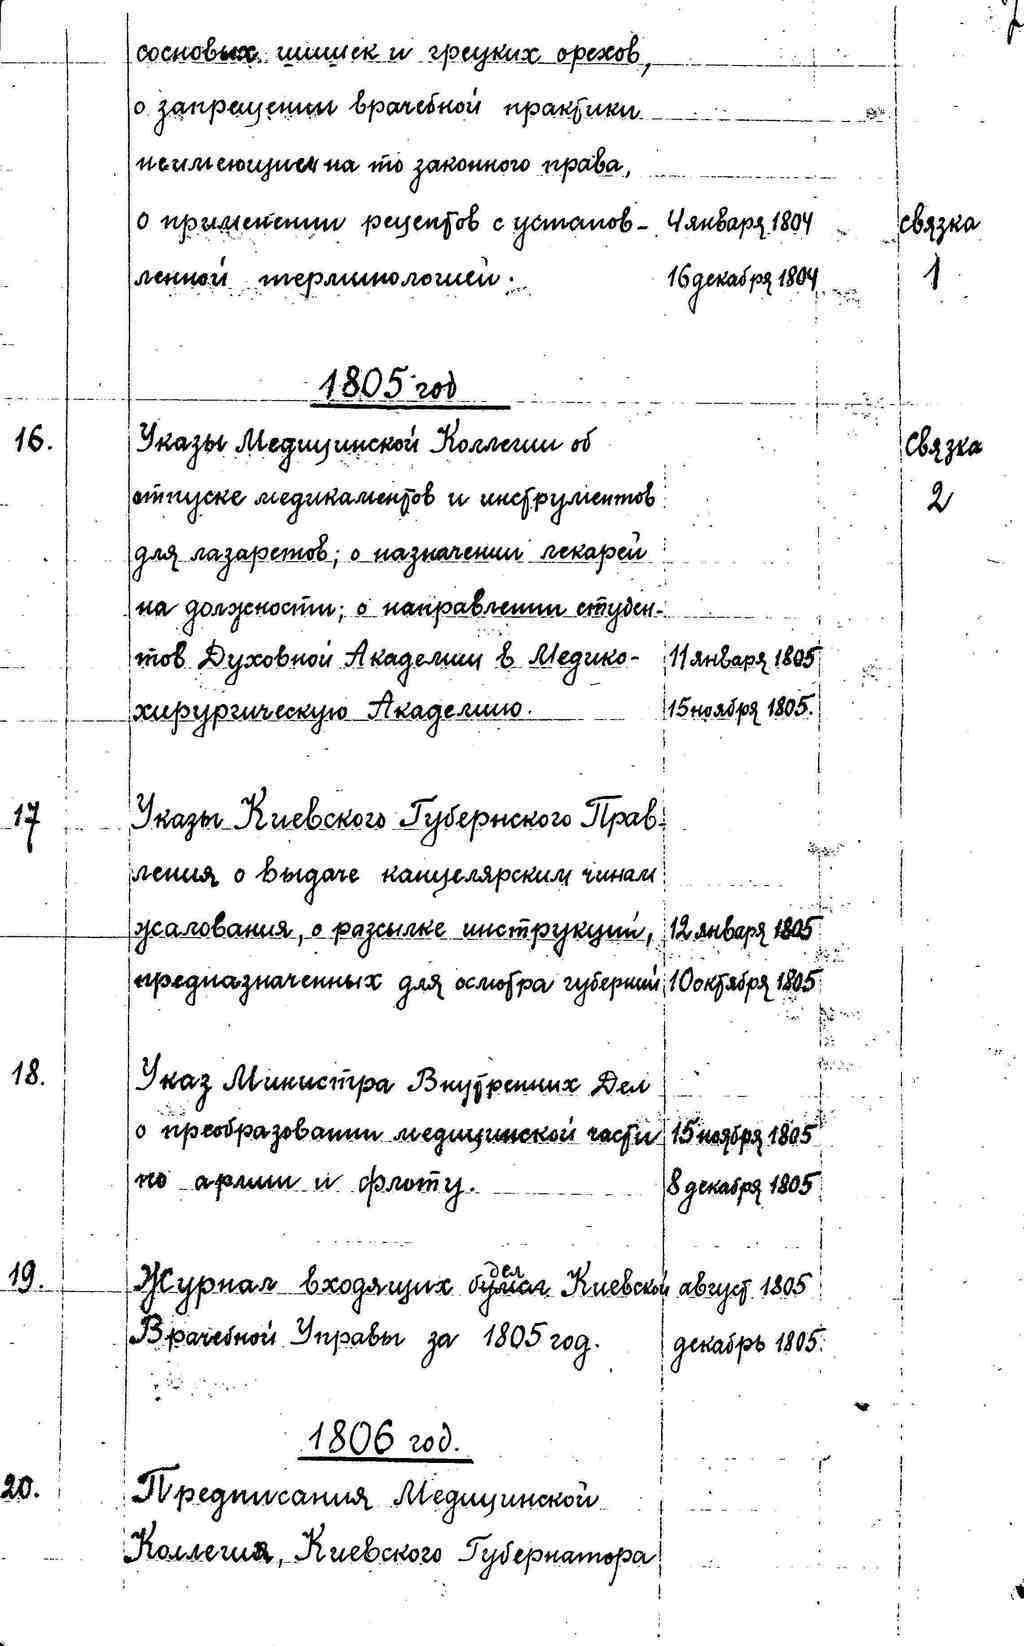 сосновых шишек и грецких орехов,
о запрещении врачебной практики
неимеющим на то законного права,
о применении рецептов с установ- 4 января 1804 связка
ленной терминологией. 16 декабря 1804 1
1805 год
16. Указы Медицинской Коллегии об Связка
отпуске медикаментов и инструментов 2
для лазаретов; о назначении лекарей
на должности; о направлении студен-
тов Духовной Академии в Медико- 11 января 1805
хирургическую Академию. 15 ноября 1805.
17 Указы Киевского Губернского Прав-
ления о выдаче канцелярским чинам
жалования, о разсылке инструкций, 12 января 1805
предназначенных для осмотра губернии 10 октября 1805
18. Указ Министра Внутренних Дел
о преобразовании медицинской части 15 ноября 1805
по армии и флоту. 8 декабря 1805
дел
19. Журнал входящих бумаг Киевской август 1805
Врачебной Управы за 1805 год. декабрь 1805.
1806 год.
20. Предписания Медицинской
Коллегия, Киевского Губернатора